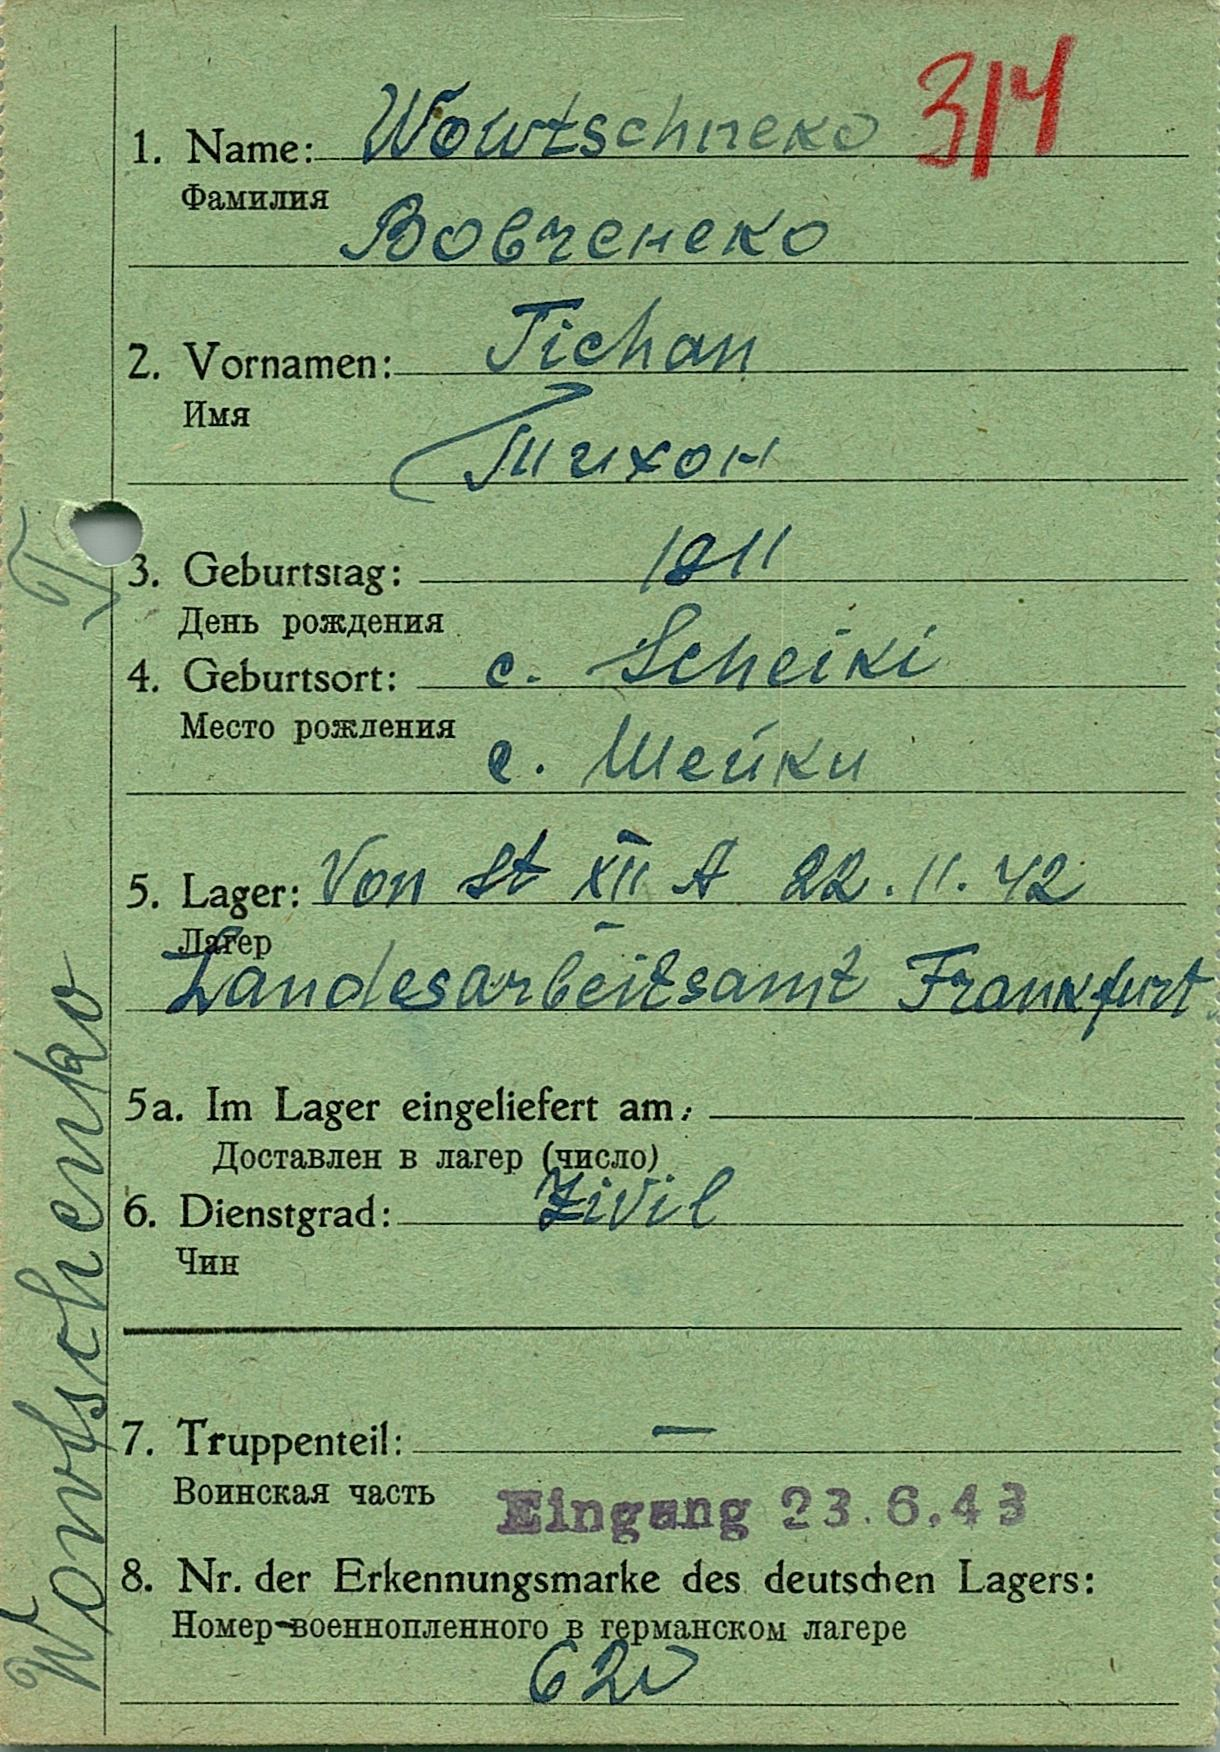 3/4
1. Name: Wowtschneko
Фамилия
Вовченеко
2. Vornamen: Tichan
Имя
Тихон
3. Geburtstag: 1911
День рождения
4. Geburtsort: с. Scheiki
Место рождения
с. Шейки
5. Lager: Von St XII A 22.11.42
Лагер
Landesarbeitsamt Frankfurt
5a. Im Lager eingeliefert am:
Доставлен в лагер (число)
6. Dienstgrad: Zivil
Чин
7. Truppenteil: —
Воинская часть
Eingang 23.6.43
8. Nr. der Erkennungsmarke des deutschen Lagers:
Номер военнопленного в германском лагере
620
Wowtschenko T